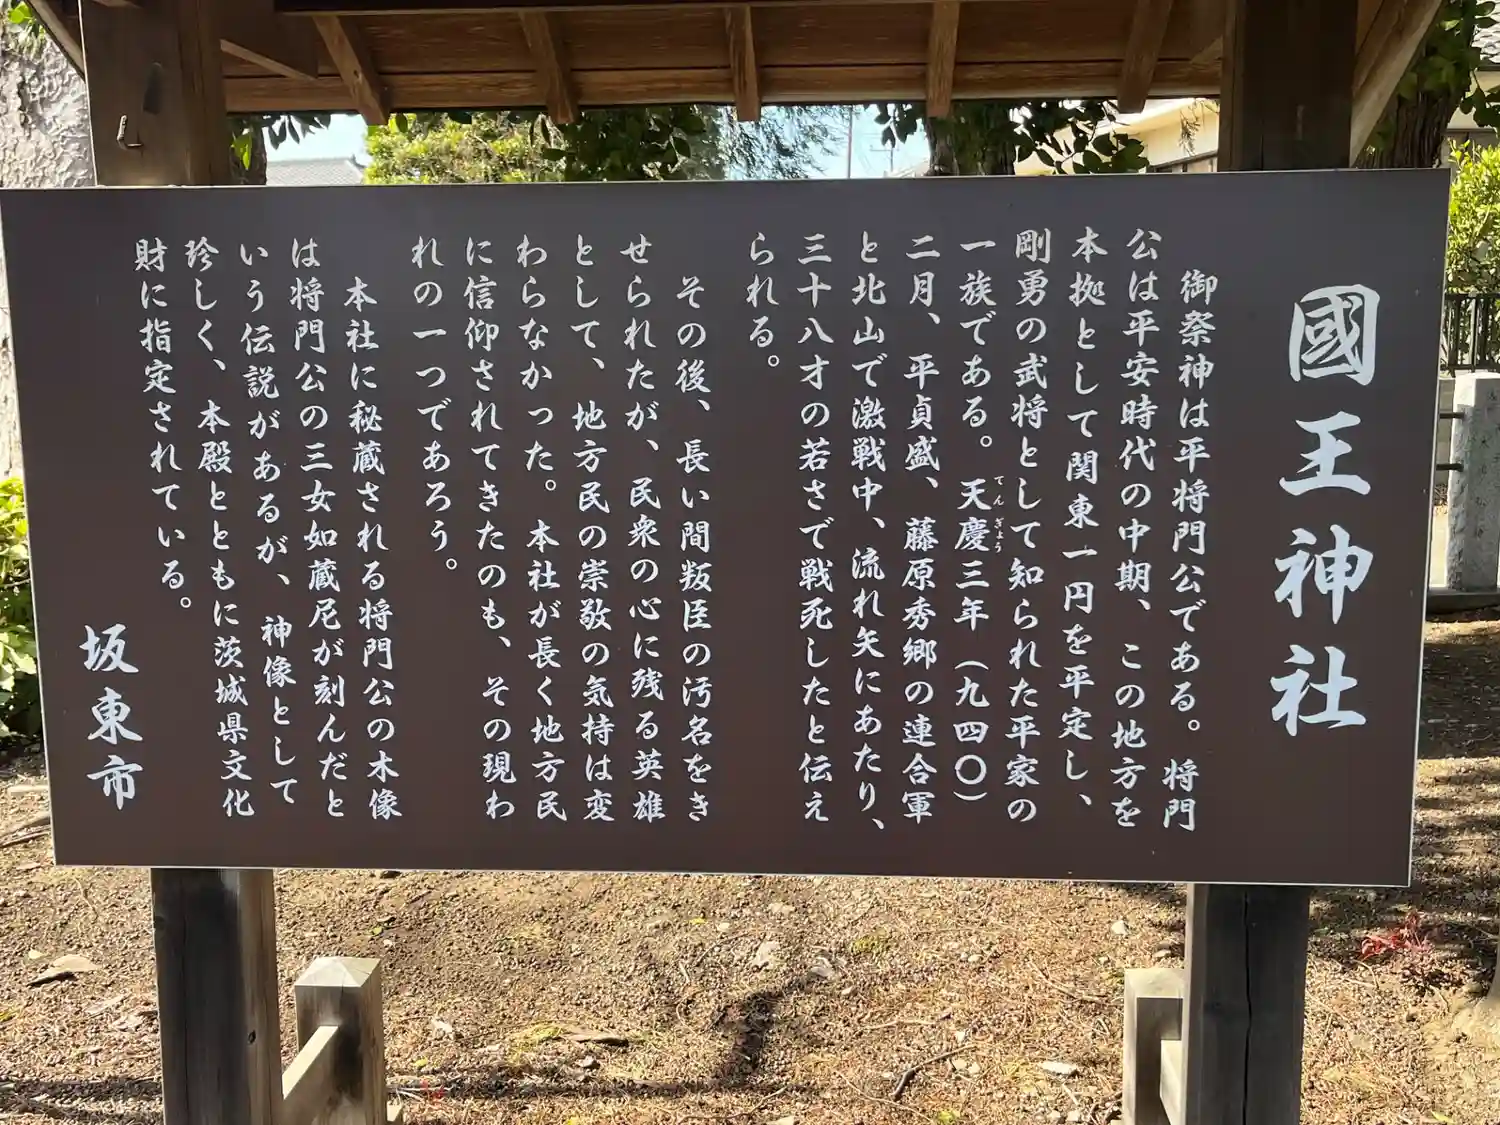 國王神社
御祭神は平将門公である。将門
公は平安時代の中期、この地方を
本拠として関東一円を平定し、
剛勇の武将として知られた平家の
一族である。天慶三年（九四〇）
てんぎょう
二月、平貞盛、藤原秀郷の連合軍
と北山で激戦中、流れ矢にあたり、
三十八才の若さで戦死したと伝え
られる。
その後、長い間叛臣の汚名をき
せられたが、民衆の心に残る英雄
として、地方民の崇敬の気持は変
わらなかった。本社が長く地方民
に信仰されてきたのも、その現わ
れの一つであろう。
本社に秘蔵される将門公の木像
は将門公の三女如蔵尼が刻んだと
いう伝説があるが、神像として
珍しく、本殿とともに茨城県文化
財に指定されている。
坂東市